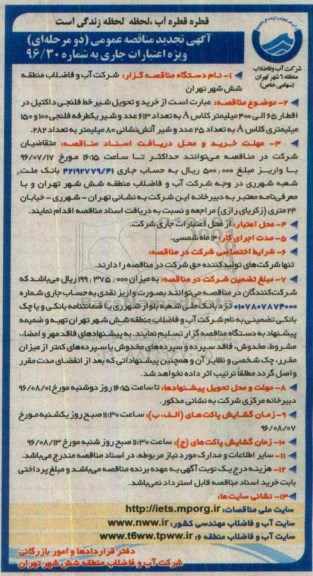 قطره قطره آب ،لحظه لحظه زندگی است
آگهی تجدید مناقصه عمومی (دو مرحله‌ای)
ویژه اعتبارات جاری به شماره ۹۶/۳۰
شرکت آب و فاضلاب
منطقه ۶ شهر تهران
(سهامی خاص)
۱- نام دستگاه مناقصه گزار: شرکت آب و فاضلاب منطقه
شش شهر تهران
۲- موضوع مناقصه: عبارت است از خرید و تحویل شیر خط فلنجی داکتیل در
اقطار ۶۵ الی ۴۰۰ میلیمتر کلاس A به تعداد ۶۱۳ عدد و شیر یکطرفه فلنجی ۱۰۰ و ۱۵۰
میلیمتری کلاس A به تعداد ۲۵ عدد و شیر آتش‌نشانی ۸۰ میلیمتر به تعداد ۲۸۲.
۳- مهلت خرید و محل دریافت اسناد مناقصه: متقاضیان
شرکت در مناقصه می‌توانند حداکثر تا ساعت ۱۶:۱۵ مورخ ۹۶/۰۷/۱۷
با واریز مبلغ ۵۰۰,۰۰۰ ریال به حساب جاری ۴۲۱۹۲۷۷۹/۴۱ بانک ملت,
شعبه شهرری در وجه شرکت آب و فاضلاب منطقه شش شهر تهران و با
معرفی‌نامه معتبر به دبیرخانه این شرکت به نشانی تهران - شهرری - خیابان
۲۴ متری (زکریای رازی) مراجعه و نسبت به دریافت اسناد مناقصه اقدام نمایند.
۴- محل اعتبار: از محل اعتبارات جاری شرکت.
۵- مدت اجرای کار: ۴ ماه شمسی.
۶- شرایط اختصاصی شرکت در مناقصه:
تنها شرکت‌های تولیدکننده حق شرکت در مناقصه را دارند.
۷- مبلغ تضمین شرکت در مناقصه: به میزان ۱۹۹,۳۷۵,۰۰۰ ریال می‌باشد که
شرکت‌کنندگان در مناقصه می‌توانند بصورت واریز نقدی به حساب جاری شماره
۰۱۰۷۸۰۷۸۷۴۰۰۰ نزد بانک ملی شعبه بلوار شهرری یا ضمانتنامه بانکی و یا چک
بانکی تضمینی به نام شرکت آب و فاضلاب منطقه شش شهر تهران تهیه و ضمیمه
پیشنهاد به دستگاه مناقصه گزار تسلیم نمایند. به پیشنهادهای فاقد مهر و امضاء،
مشروط، مخدوش، فاقد سپرده و سپرده‌های مخدوش یا سپرده‌های کمتر از میزان
مقرر، چک شخصی و نظایر آن و همچنین پیشنهاداتی که بعد از انقضای مدت مقرر
واصل گردد مطلقاً ترتیب اثر داده نخواهد شد.
۸- مهلت و محل تحویل پیشنهادها: تا ساعت ۱۶:۱۵ روز دوشنبه مورخ ۹۶/۰۸/۰۱
دبیرخانه مرکزی شرکت به نشانی مذکور.
۹- زمان گشایش پاکت‌های (الف، ب): ساعت ۱۱:۳۰ صبح روز یکشنبه مورخ
۹۶/۰۸/۰۷
۱۰- زمان گشایش پاکت‌های (ج): ساعت ۱۱:۳۰ صبح روز شنبه مورخ ۹۶/۰۸/۱۳
۱۱- سایر اطلاعات و مدارک مورد نیاز مربوطه، در اسناد مناقصه مندرج می‌باشد.
۱۲- هزینه درج یک نوبت آگهی به عهده برنده مناقصه می‌باشد و مبلغ پرداختی
بابت خرید اسناد مناقصه قابل استرداد نمی‌باشد.
۱۳- نشانی سایت ها:
سایت ملی مناقصات: http://iets.mporg.ir
سایت آب و فاضلاب مهندسی کشور: www.nww.ir
سایت آب و فاضلاب منطقه ۶: www.t6ww.tpww.ir
دفتر قراردادها و امور بازرگانی
شرکت آب و فاضلاب منطقه شش شهر تهران